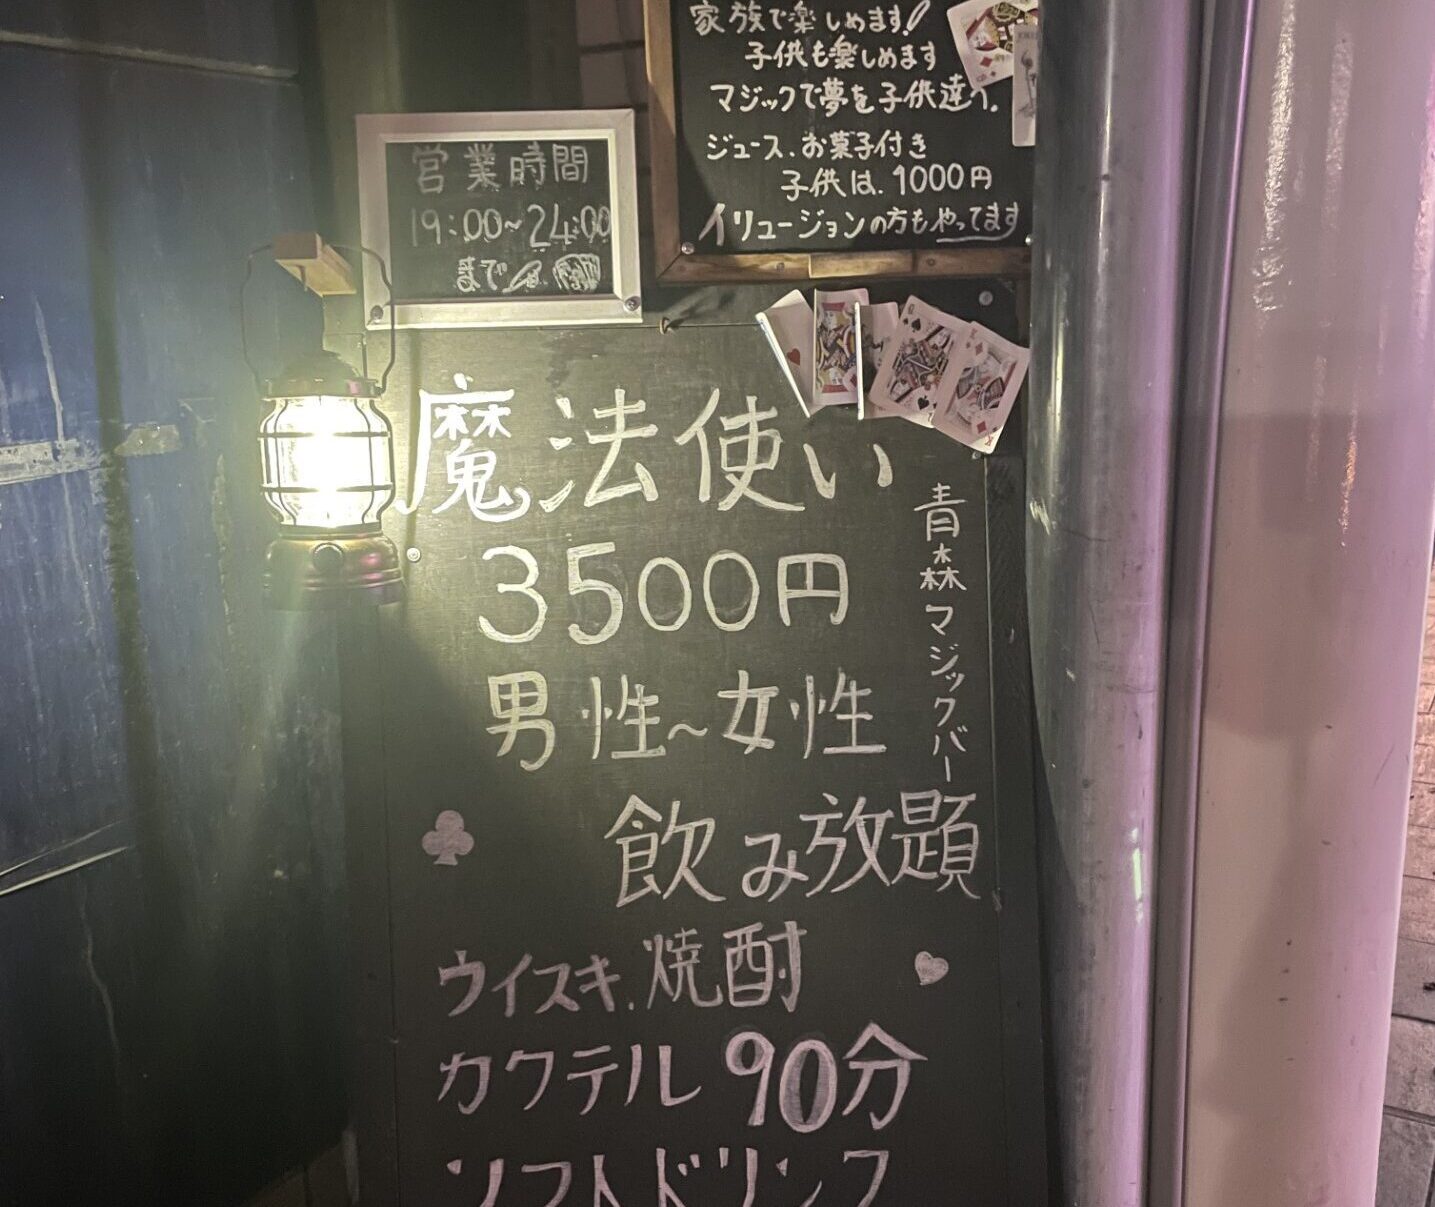 家族で楽しめます!
子供も楽しめます
マジックで夢を子供達へ.
ジュース.お菓子付き
子供は.1000円
イリュージョンの方もやってます
営業時間
19:00~24:00
まで
魔法使い
3500円
男性~女性
飲み放題
青森マジックバー
ウイスキ.焼酎
カクテル 90分
ソフトドリンク